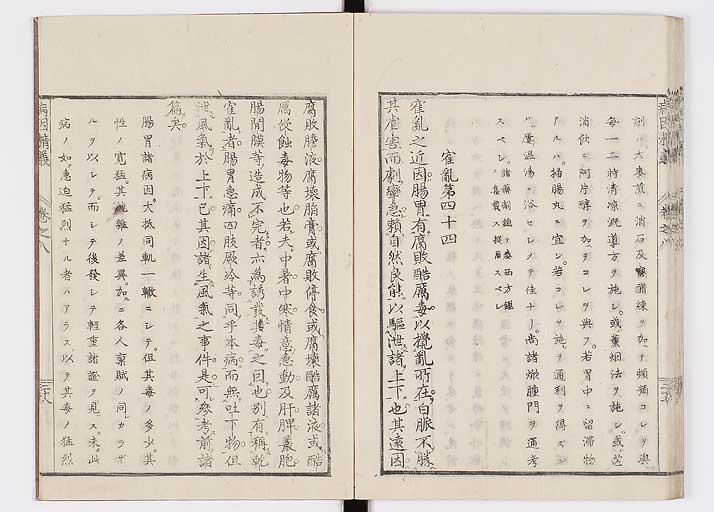 劑ハ大麥煎ニ消石及蜜醋煉ヲ加ヘ頻頻コレヲ與
每一二時清凉漑導方ヲ施シ。或ハ薰烟法ヲ施シ。或ハ送
消飮ニ阿片醇ヲ加ヘテコレヲ與フ。若胃中ニ留滯物
アルハ。掃腸丸ニ宜シ。若コレヲ施ヲ通利ヲ得ズン
ハ。屢溫湯ニ浴セシムルヲ佳トす。尚諸焮腫門ヲ通考
スベシ。
霍亂第四十四
霍亂之近因。腸胃有腐敗酷厲毒。以攪亂所在。白脈不勝
其虐害而劇攣急。賴自然良能。以驅泄諸上下也。其遠因
腐敗膽液。腐壞脂膏。或腐敗停食。或腐壞酷厲諸液。或酷
厲侵蝕毒物等也。若夫中暑中寒。情意急動及肝脾囊胞
腸間膜等。造成不完者。亦爲誘發其毒之因也。別有稱乾
霍亂者。腸胃急痛。四肢厥冷等。同乎本病。而無吐下物。但
泄風氣於上下已。其因諸生風氣之事件是。可參考前諸
篇矣。
腸胃諸病因。大抵同軌一轍ニシテ。但其毒ノ多少。其
性ノ寬猛。其純雜ノ差異。加ニ各人稟賦ノ同カラザ
ルヲ以シテ。而シテ後發シテ輕重諸證ヲ見ス。未此
病ノ如ク急迫猛烈ナル者ハアラス。以テ其毒ノ猛烈